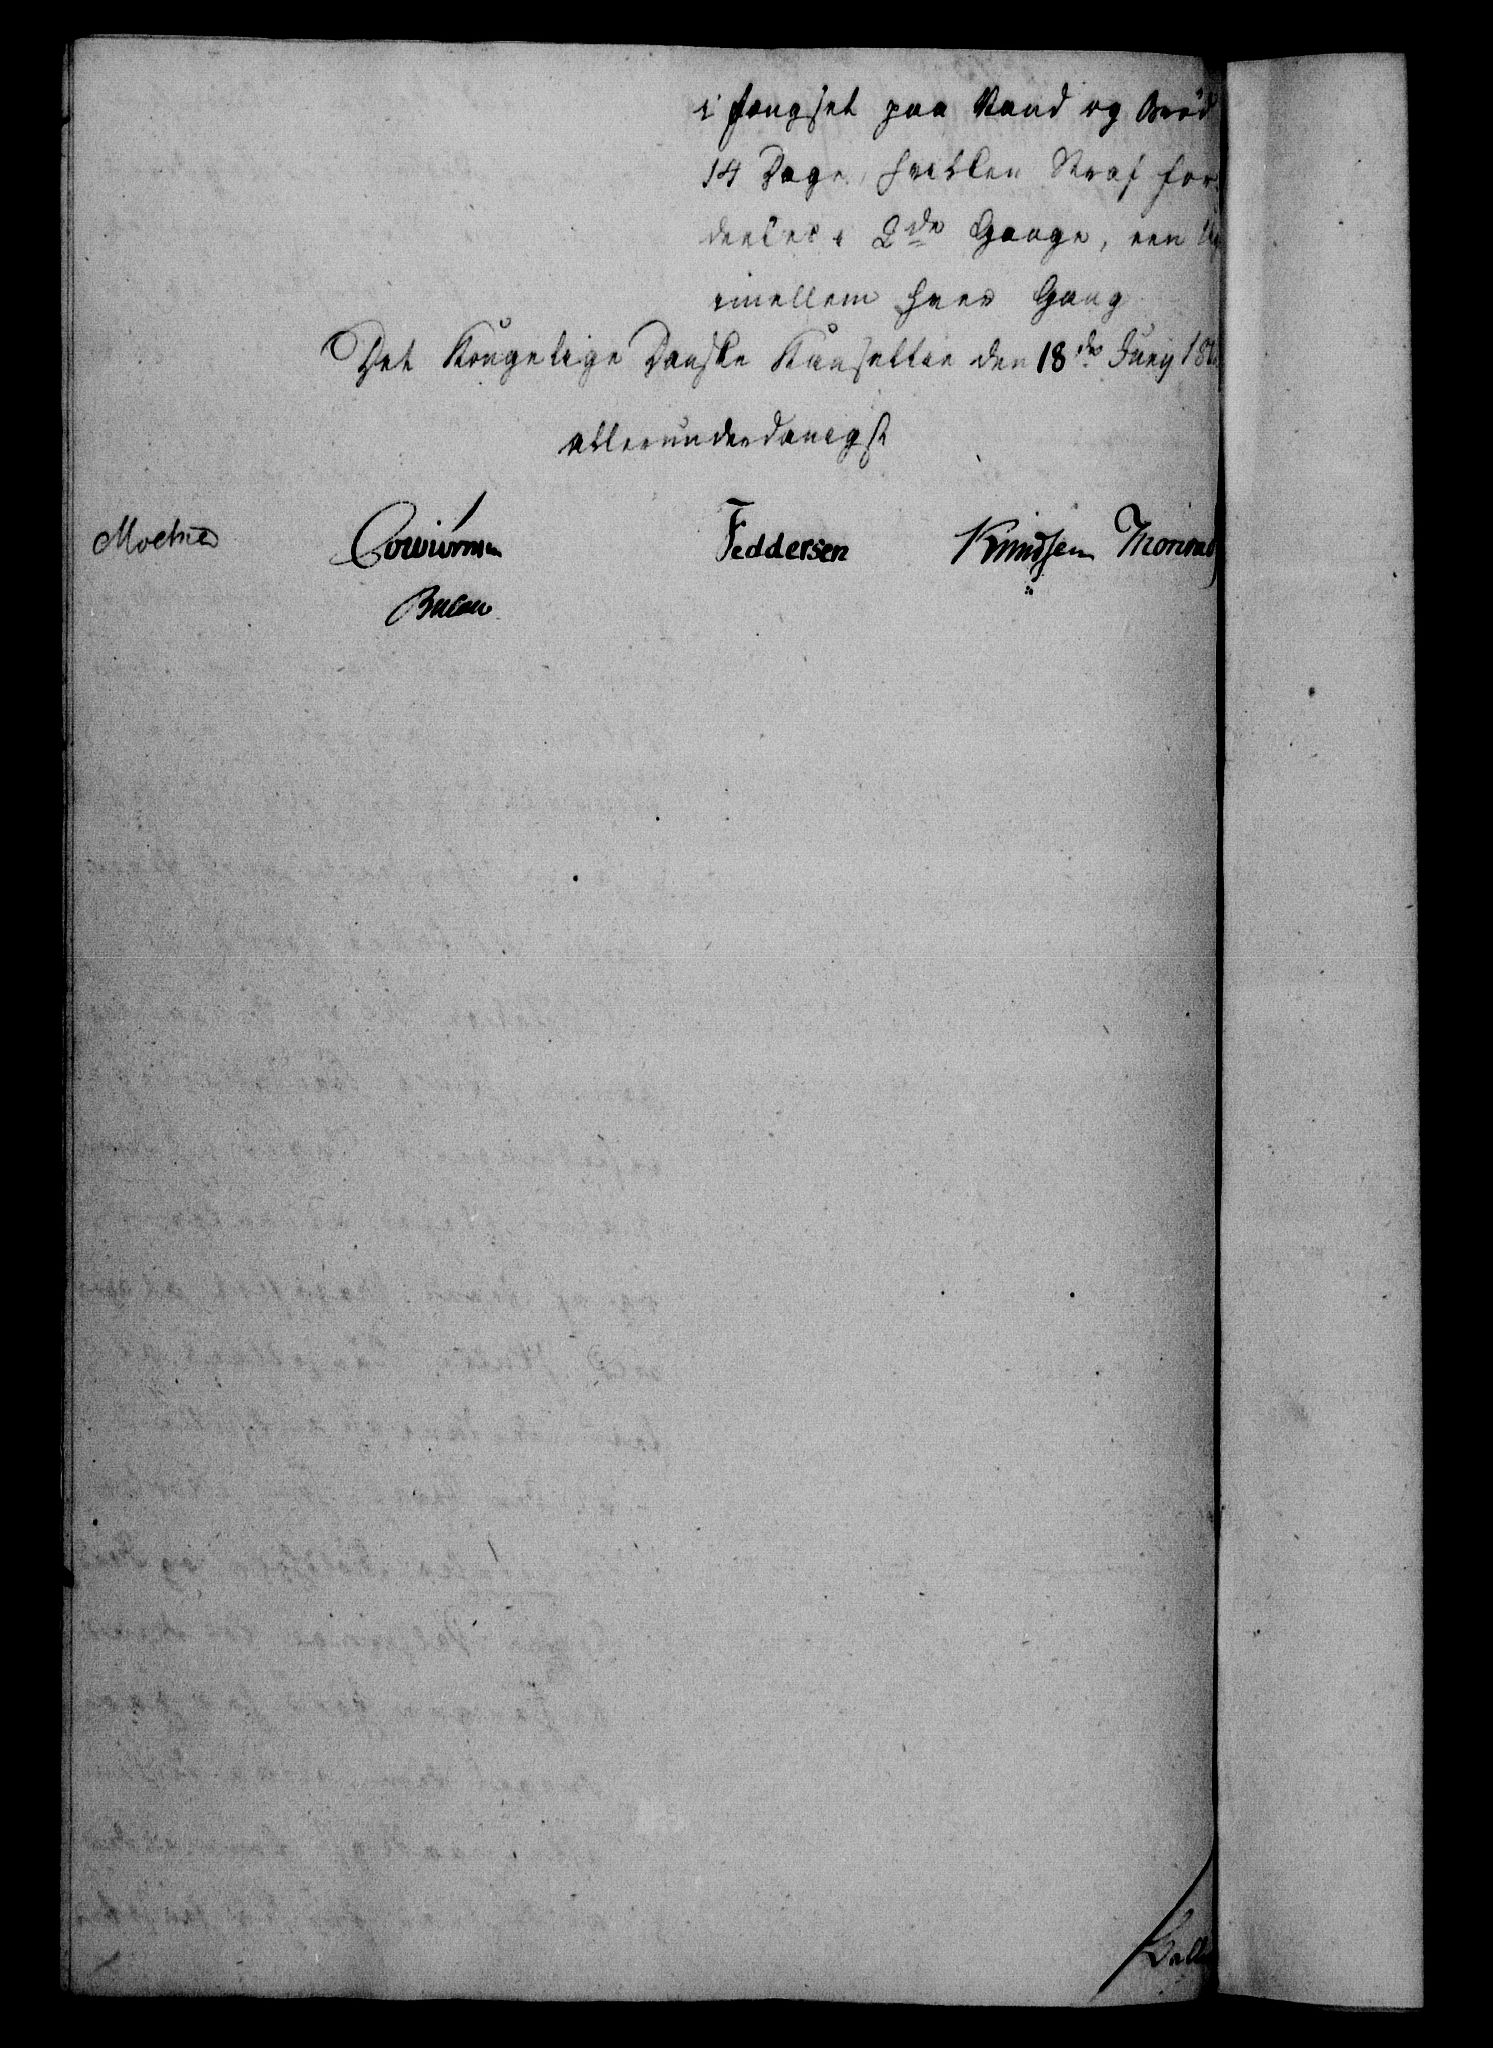 i Fængsel paa Vand og Brød
14 Dage, hvilken Straf for-
deeles i 2de Gange, een
imellem hver Gang
Det Kongelige Danske Kancellie den 18de Juny 18
allerunderdanigst
Cowiornsen Feddersen Knudsen Monrad
Bülow